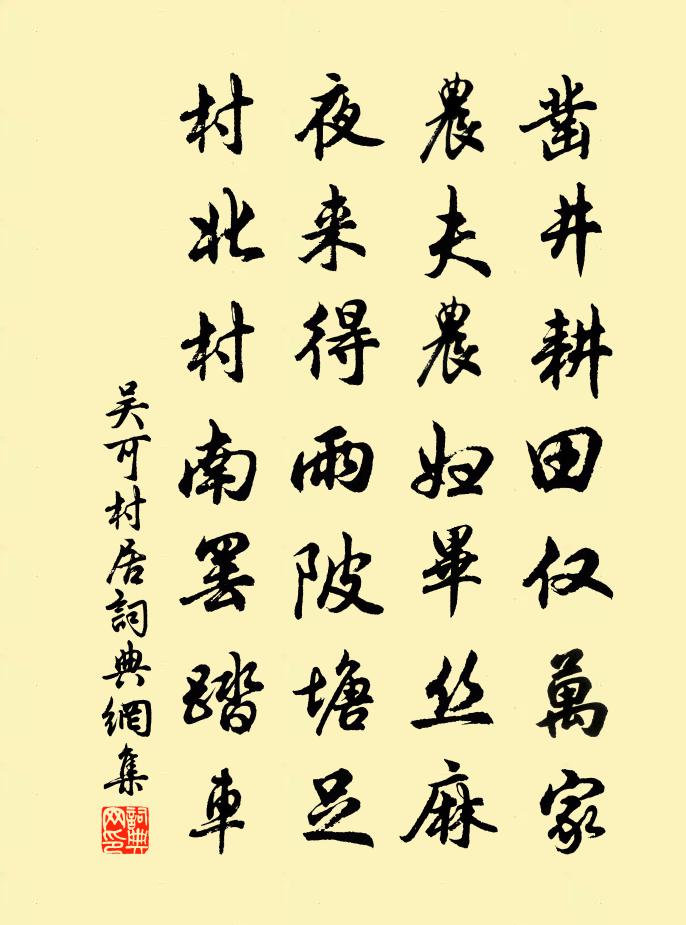 凿井耕田仅萬家
農夫農妇畢丝麻
夜来得雨陂塘足
村北村南罢踏車
吴可村居詞典網集
詞典网印